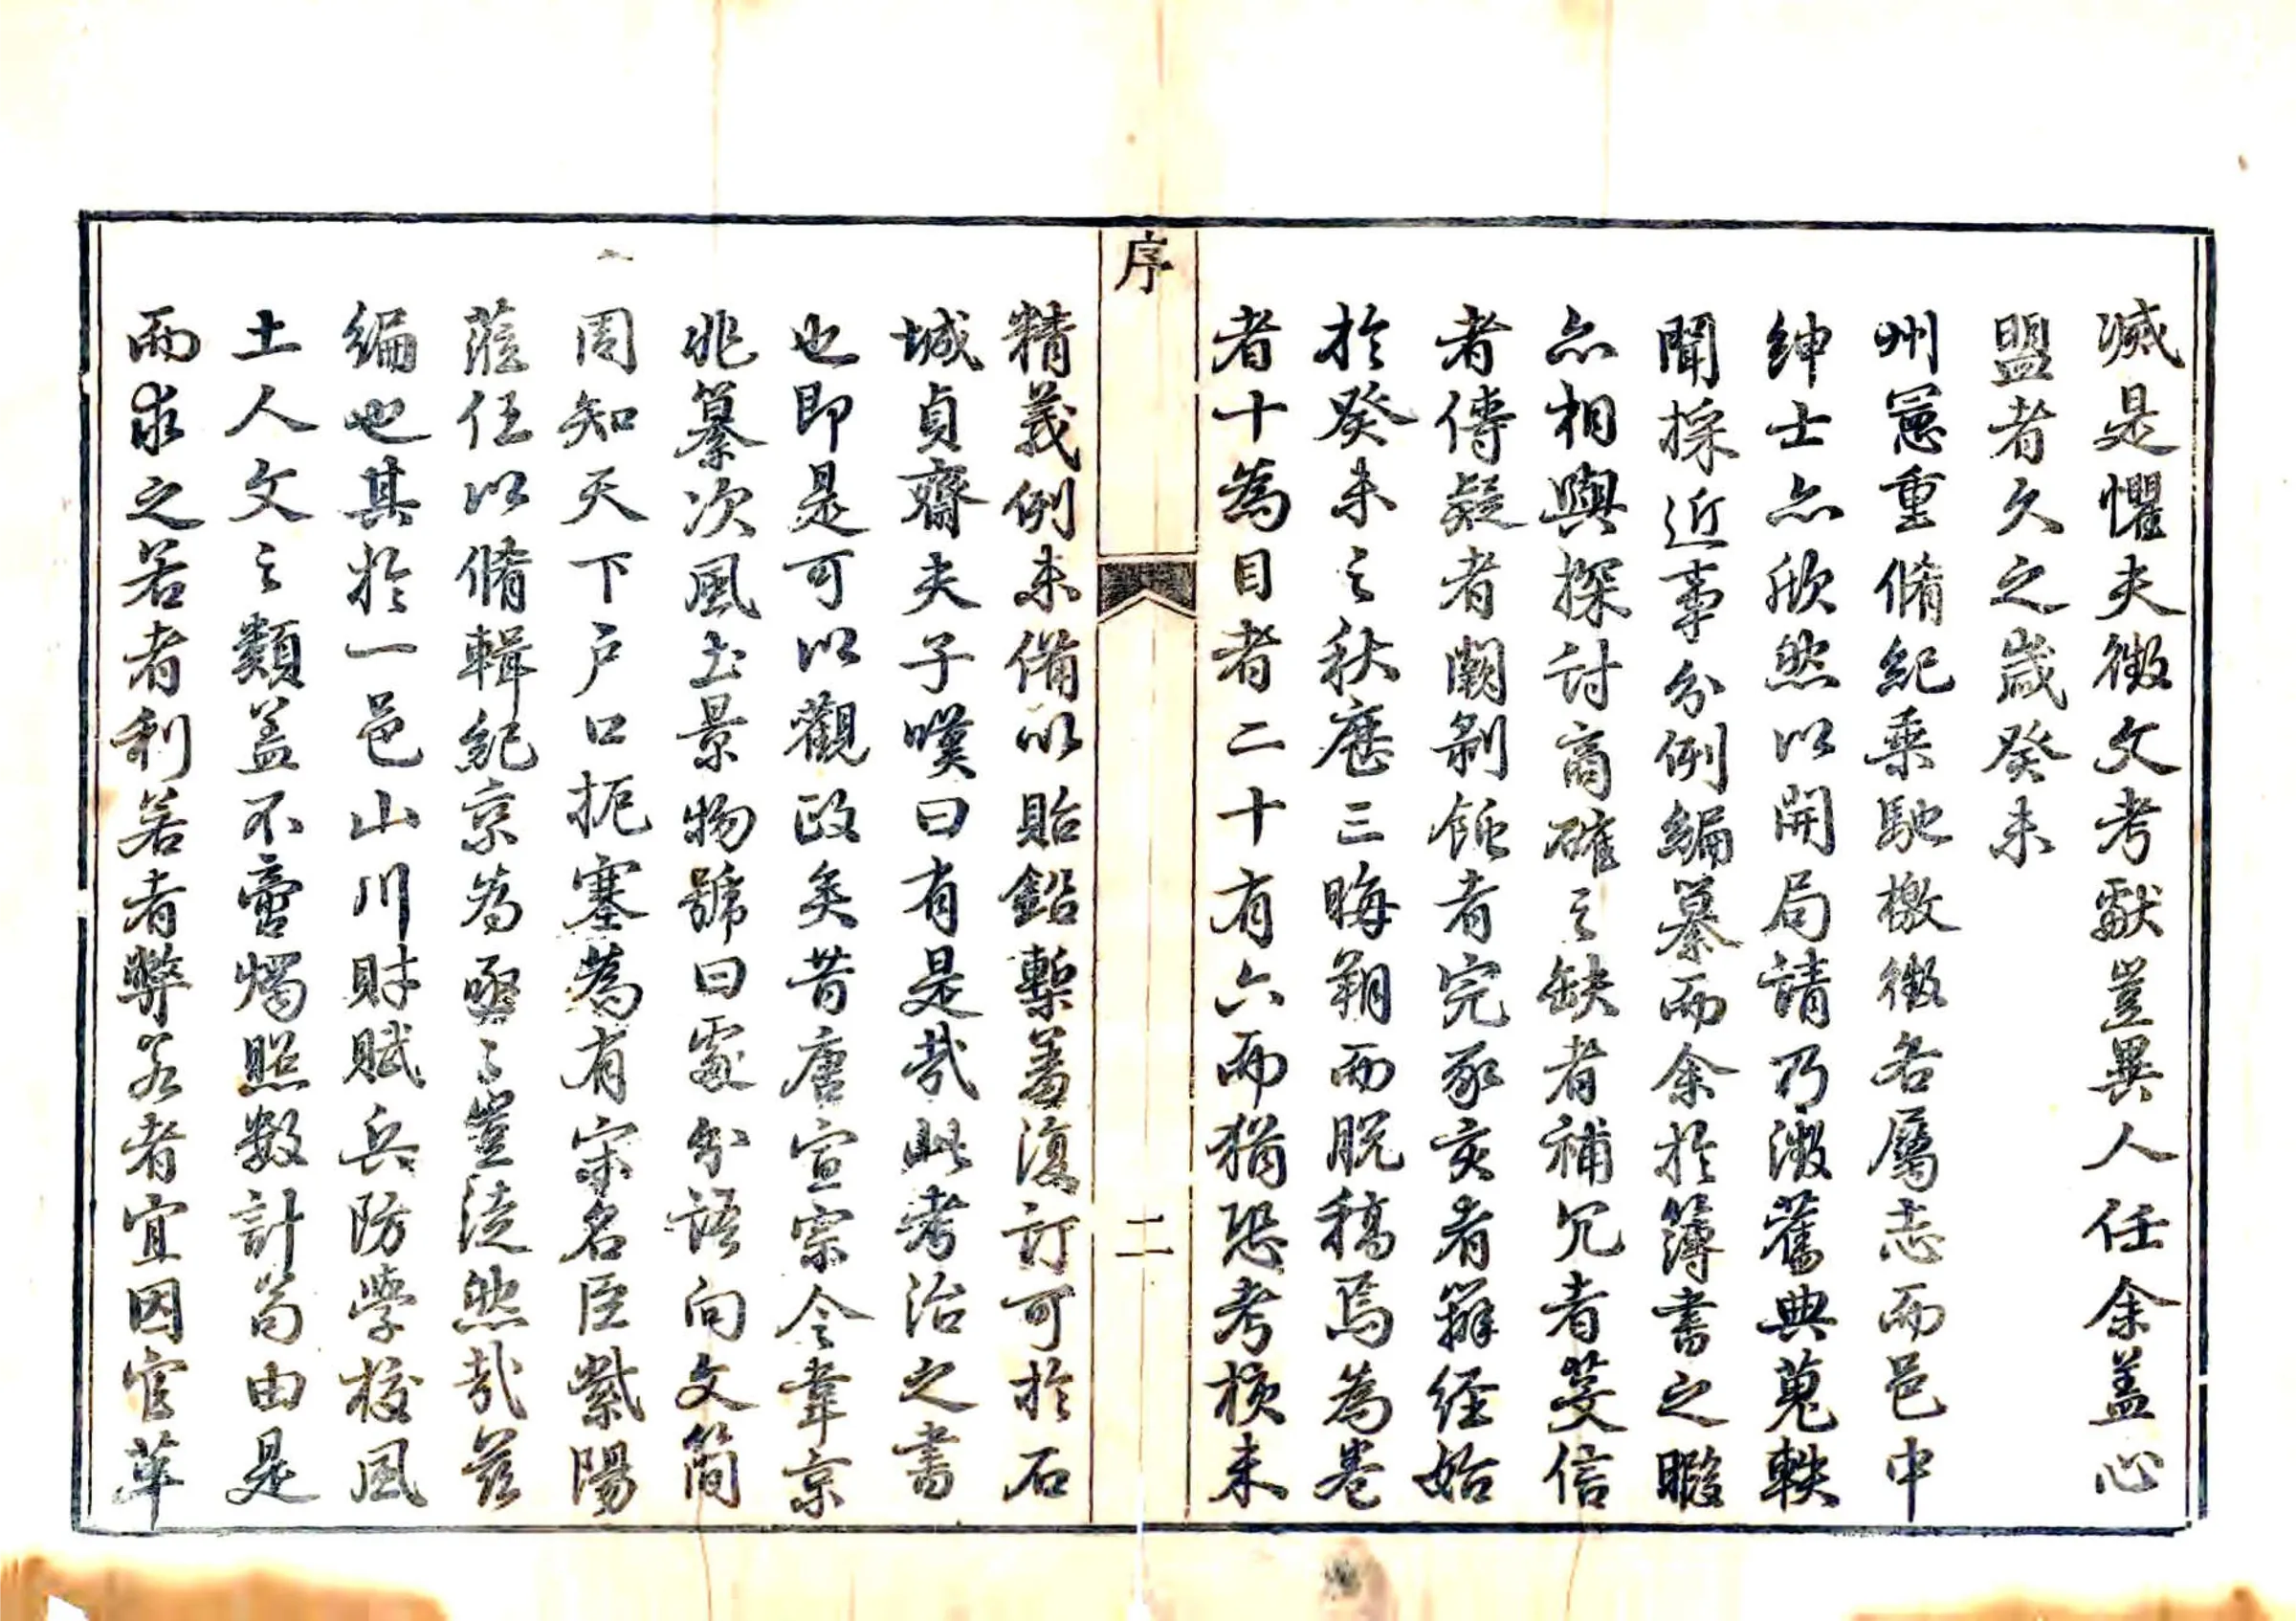 滅是懼夫徵文考獻豈異人任余盖心
盟者久之歲癸未
州憲重脩紀乘馳檄徵各屬志而邑中
紳士亦欣然以開局請乃溯舊典蒐軼
聞採近事分例編纂而余於簿書之暇
亦相與探討商確之缺者補冗者芟信
者傳疑者闕剝蝕者完豕亥者辨經始
於癸未之秋歷三晦朔而脫稿焉為卷
者十為目者二十有六而猶恐考核未
序
二
精義例未備以貽鉛槧羞復訂可於石
城貞齋夫子嘆曰有是哉此考治之書
也即是可以觀政矣昔唐宣宗令韋京
兆纂次風土景物號曰處分語向文簡
周知天下戶口扼塞為有宋名臣紫陽
蒞任以脩輯紀京為亟之豈徒然哉茲
編也其於一邑山川財賦兵防學校風
土人文之類盖不啻燭照數計苟由是
而求之若者利若者弊若者宜因宜革